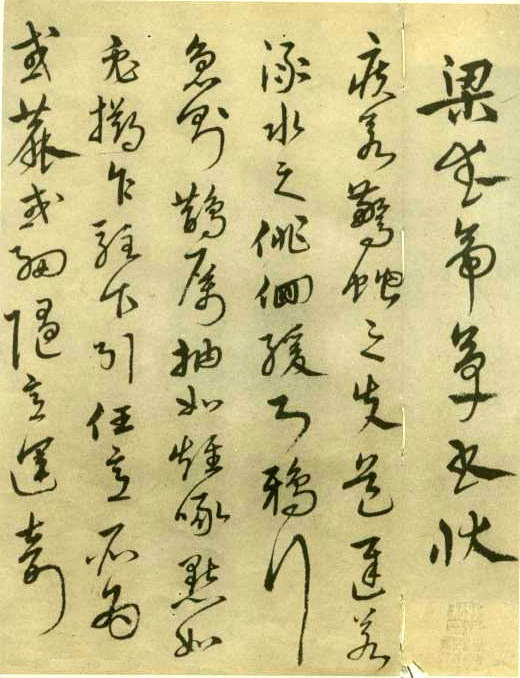 梁武帝草書狀
疾若驚蛇之失道遲若
淥水之俳佪緩則鴉行
急則鵲厲抽如雉啄點如
兔擲乍駐乍引任意所為
或麁或細隨意運奇